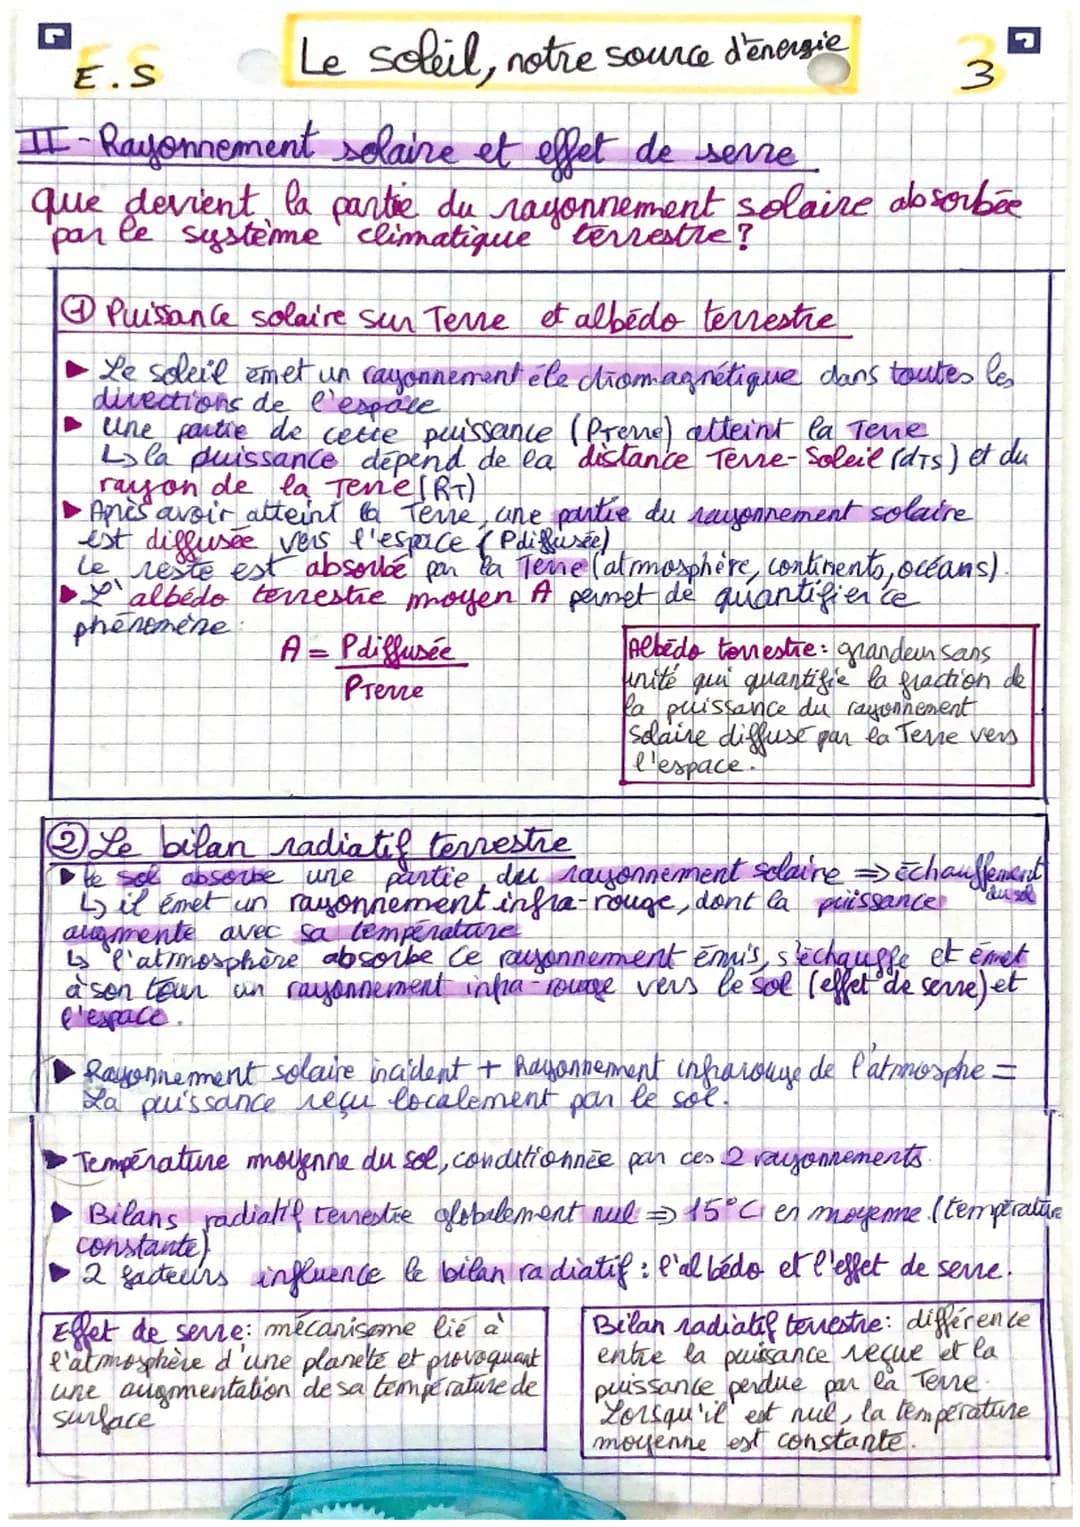 E.S
Le soleil, notre source d'énergie
3
II - Rayonnement solaire et effet de serre
que devient la partie du rayonnement solaire absorbée
par le système climatique terrestre ?
① Puissance solaire sur Terre et albédo terrestre
▶ Le soleil émet un rayonnement électromagnétique dans toutes les
directions de l'espace
▶ une partie de cette puissance (PTerre) atteint la Terre
↳ la puissance dépend de la distance Terre-Soleil (dTS) et du
rayon de la Terre (RT)
▶ Après avoir atteint la Terre, une partie du rayonnement solaire
est diffusée vers l'espace (Pdiffusée)
Le reste est absorbé par la Terre (atmosphère, continents, océans).
▶ L'albédo terrestre moyen A permet de quantifier ce
phénomène :
A = Pdiffusée
PTerre
Albédo terrestre : grandeur sans
unité qui quantifie la fraction de
la puissance du rayonnement
solaire diffusé par la Terre vers
l'espace.
② Le bilan radiatif terrestre
▶ le sol absorbe une partie du rayonnement solaire ⇒ échauffement
du sol
↳ il émet un rayonnement infra-rouge, dont la puissance
augmente avec sa température
↳ l'atmosphère absorbe ce rayonnement émis, s'échauffe et émet
à son tour un rayonnement infra-rouge vers le sol (effet de serre) et
l'espace.
▶ Rayonnement solaire incident + Rayonnement infrarouge de l'atmosphe =
La puissance reçu localement par le sol.
▶ Température moyenne du sol, conditionnée par ces 2 rayonnements.
▶ Bilans radiatif terrestre globalement nul ⇒ 15°C en moyenne. (température
constante)
▶ 2 facteurs influence le bilan radiatif : l'albédo et l'effet de serre.
Effet de serre : mécanisme lié à
l'atmosphère d'une planète et provoquant
une augmentation de sa température de
surface
Bilan radiatif terrestre : différence
entre la puissance reçue et la
puissance perdue par la Terre.
Lorsqu'il est nul, la température
moyenne est constante.